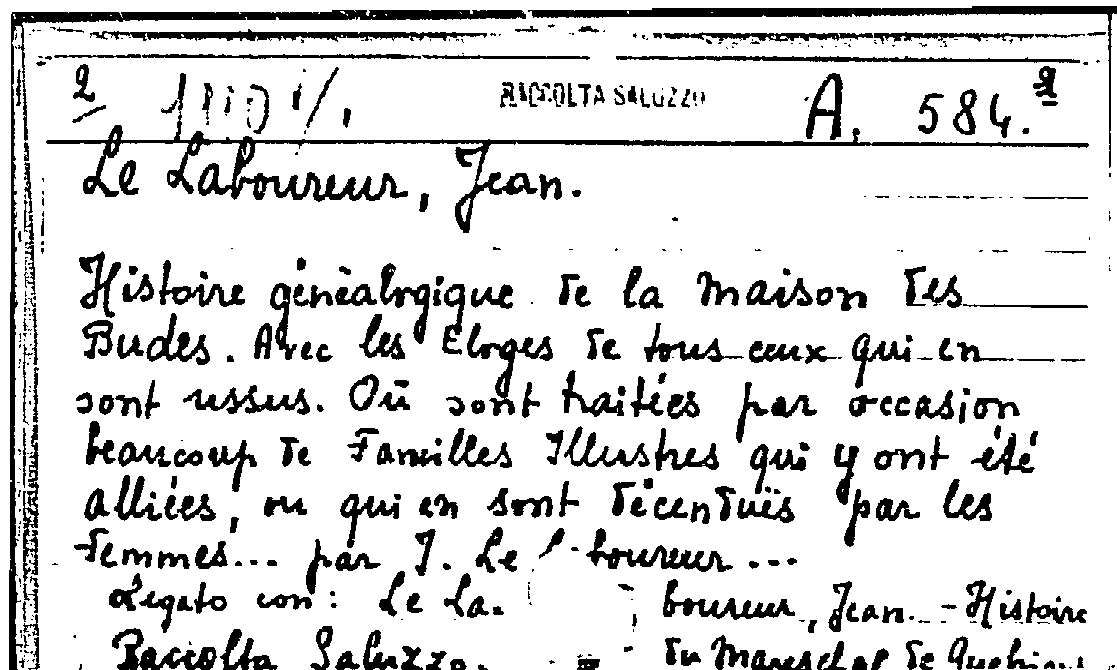 2 RACCOLTA SALUZZO A. 584.2
Le Laboureur, Jean.
Histoire généalogique de la maison des
Budes. Avec les Eloges de tous ceux qui en
sont ussus. Où sont traitées par occasion
beaucoup de Familles Illustres qui y ont été
alliées, ou qui en sont décenduës par les
femmes... par J. Le boureur...
Legato con: Le La. boureur, Jean. - Histoire
Raccolta Saluzzo. du Mareschal de